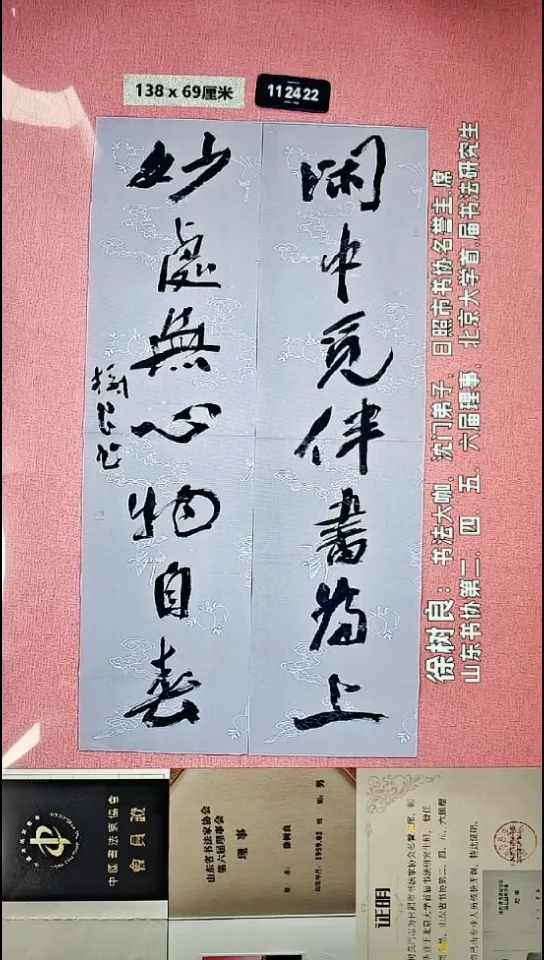 138 x 69厘米
112422
闲中觅伴書為上
妙處無心物自春
徐树良:书法大咖,沈门弟子,日照市书协名誉主席
山东书协第二、四、五、六届理事,北京大学首届书法研究生
中國書法家協會
會員證
山东省书法家协会
第六届理事会
理事
徐树良
男
1959.02
证明